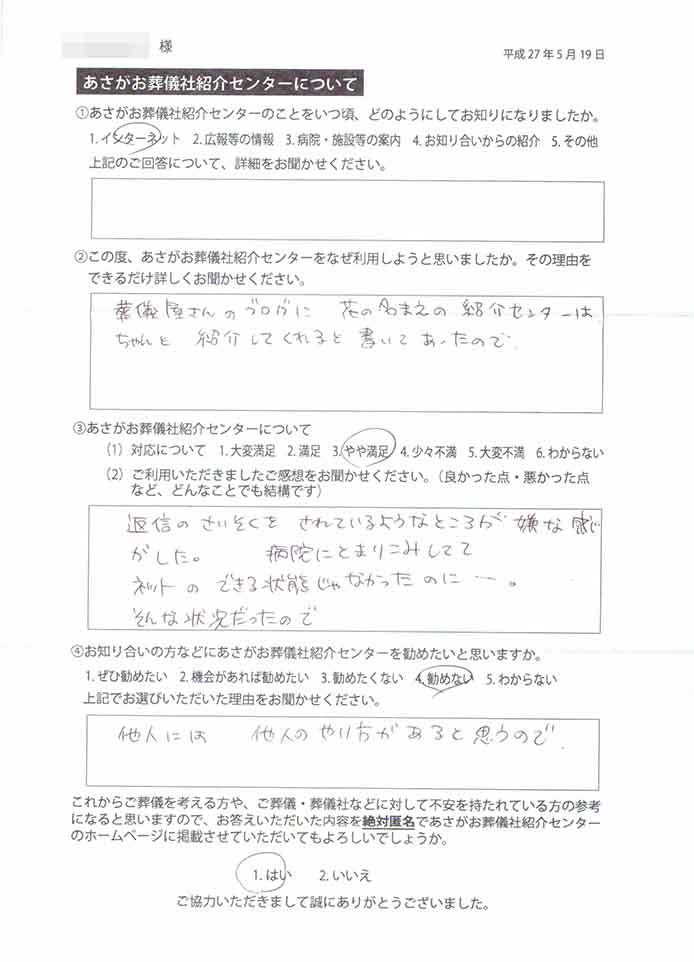 様
平成27年5月19日
あさがお葬儀社紹介センターについて
①あさがお葬儀社紹介センターのことをいつ頃、どのようにしてお知りになりましたか。
1. インターネット 2. 広報等の情報 3. 病院・施設等の案内 4. お知り合いからの紹介 5. その他
上記のご回答について、詳細をお聞かせください。
②この度、あさがお葬儀社紹介センターをなぜ利用しようと思いましたか。その理由を
できるだけ詳しくお聞かせください。
葬儀屋さんのブログに 花の名まえの 紹介センターは
ちゃんと 紹介してくれると 書いてあったので
③あさがお葬儀社紹介センターについて
(1) 対応について 1. 大変満足 2. 満足 3. やや満足 4. 少々不満 5. 大変不満 6. わからない
(2) ご利用いただきましたご感想をお聞かせください。(良かった点・悪かった点
など、どんなことでも結構です)
返信の さいそくを されているようなところが 嫌な感じ
がした。 病院にとまりこみしてて
ネットの できる状態じゃなかったのに ー。
そんな状況だったので
④お知り合いの方などにあさがお葬儀社紹介センターを勧めたいと思いますか。
1. ぜひ勧めたい 2. 機会があれば勧めたい 3. 勧めたくない 4. 勧めない 5. わからない
上記でお選びいただいた理由をお聞かせください。
他人には 他人の やり方が あると 思うので.
これからご葬儀を考える方や、ご葬儀・葬儀社などに対して不安を持たれている方の参考
になると思いますので、お答えいただいた内容を絶対匿名であさがお葬儀社紹介センター
のホームページに掲載させていただいてもよろしいでしょうか。
1. はい 2. いいえ
ご協力いただきまして誠にありがとうございました。